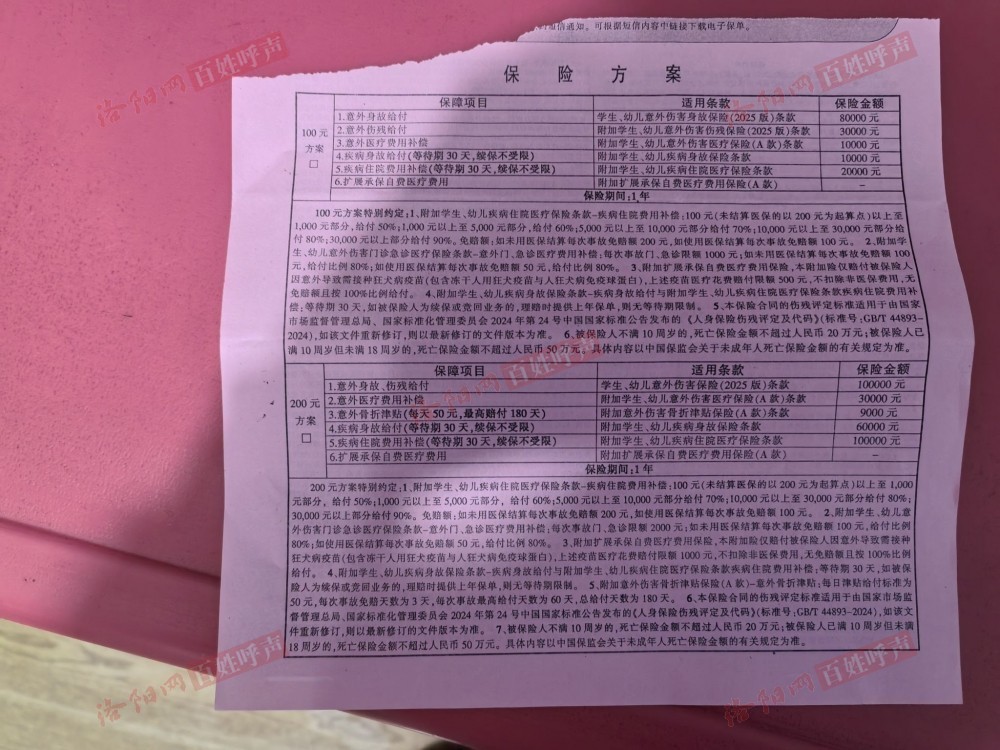 的短信通知。可根据短信内容中链接下载电子保单。
保 险 方 案
保障项目 适用条款 保险金额
100元方案□
1.意外身故给付 学生、幼儿意外伤害身故保险(2025 版)条款 80000 元
2.意外伤残给付 附加学生、幼儿意外伤害伤残保险(2025 版)条款 30000 元
3.意外医疗费用补偿 附加学生、幼儿意外伤害医疗保险(A 款)条款 10000 元
4.疾病身故给付(等待期 30 天,续保不受限) 附加学生、幼儿疾病身故保险条款 10000 元
5.疾病住院费用补偿(等待期 30 天,续保不受限) 附加学生、幼儿疾病住院医疗保险条款 20000 元
6.扩展承保自费医疗费用 附加扩展承保自费医疗费用保险(A 款) –
保险期间:1 年
100元方案特别约定:1、附加学生、幼儿疾病住院医疗保险条款–疾病住院费用补偿:100 元(未结算医保的以 200 元为起算点)以上至
1,000 元部分,给付 50%;1,000 元以上至 5,000 元部分,给付 60%;5,000 元以上至 10,000 元部分给付 70%;10,000 元以上至 30,000 元部分给
付 80%;30,000 元以上部分给付 90%。免赔额:如未用医保结算每次事故免赔额 200 元,如使用医保结算每次事故免赔额 100 元。 2、附加学
生、幼儿意外伤害门诊急诊医疗保险条款–意外门、急诊医疗费用补偿:每次事故门、急诊限额 1000 元;如未用医保结算每次事故免赔额 100
元,给付比例 80%;如使用医保结算每次事故免赔额 50 元,给付比例 80%。 3、附加扩展承保自费医疗费用保险,本附加险仅赔付被保险人
因意外导致需接种狂犬病疫苗(包含人用狂犬疫苗与人狂犬病免疫球蛋白),上述疫苗医疗花费赔付限额 500 元,不扣除非医保费用,无
免赔额且按 100%比例给付。 4、附加学生、幼儿疾病身故保险条款–疾病身故给付与附加学生、幼儿疾病住院医疗保险条款疾病住院费用补
偿:等待期 30 天,如被保险人为续保或竞回业务的,理赔时提供上年保单,则无等待期限制。 5、本保险合同的伤残评定标准适用于由国家
市场监督管理总局、国家标准化管理委员会 2024 年第 24 号中国国家标准公告发布的《人身保险伤残评定及代码》(标准号:GB/T 44893–
2024),如该文件重新修订,则以最新修订的文件版本为准。 6、被保险人不满 10 周岁的,死亡保险金额不超过人民币 20 万元;被保险人已
满 10 周岁但未满 18 周岁的,死亡保险金额不超过人民币 50 万元。具体内容以中国保监会关于未成年人死亡保险金额的有关规定为准。
保障项目 适用条款 保险金额
200元方案□
1.意外身故、伤残给付 学生、幼儿意外伤害保险(2025 版)条款 100000 元
2.意外医疗费用补偿 附加学生、幼儿意外伤害医疗保险(A 款)条款 30000 元
3.意外骨折津贴(每天 50 元,最高赔付 180 天) 附加意外伤害骨折津贴保险(A 款)条款 9000 元
4.疾病身故给付(等待期 30 天,续保不受限) 附加学生、幼儿疾病身故保险条款 60000 元
5.疾病住院费用补偿(等待期 30 天,续保不受限) 附加学生、幼儿疾病住院医疗保险条款 100000 元
6.扩展承保自费医疗费用 附加扩展承保自费医疗费用保险(A 款) –
保险期间:1 年
200元方案特别约定:1、附加学生、幼儿疾病住院医疗保险条款–疾病住院费用补偿:100 元(未结算医保的以 200 元为起算点)以上至 1,000
元部分,给付 50%;1,000 元以上至 5,000 元部分,给付 60%;5,000 元以上至 10,000 元部分给付 70%;10,000 元以上至 30,000 元部分给付 80%;
30,000 元以上部分给付 90%。免赔额:如未用医保结算每次事故免赔额 200 元,如使用医保结算每次事故免赔额 100 元。 2、附加学生、幼儿意
外伤害门诊急诊医疗保险条款–意外门、急诊医疗费用补偿:每次事故门、急诊限额 2000 元;如未用医保结算每次事故免赔额 100 元,给付比例
80%;如使用医保结算每次事故免赔额 50 元,给付比例 80%。 3、附加扩展承保自费医疗费用保险,本附加险仅赔付被保险人因意外导致需接种
狂犬病疫苗(包含人用狂犬疫苗与人狂犬病免疫球蛋白),上述疫苗医疗花费赔付限额 1000 元,不扣除非医保费用,无免赔额且按 100%比例
给付。 4、附加学生、幼儿疾病身故保险条款–疾病身故给付与附加学生、幼儿疾病住院医疗保险条款疾病住院费用补偿:等待期 30 天,如被保
险人为续保或竞回业务的,理赔时提供上年保单,则无等待期限制。 5、附加意外伤害骨折津贴保险(A 款)–意外骨折津贴:每日津贴给付标准为
50 元,每次事故免赔天数为 3 天,每次事故最高给付天数为 60 天,总给付天数为 180 天。 6、本保险合同的伤残评定标准适用于由国家市场监
督管理总局、国家标准化管理委员会 2024 年第 24 号中国国家标准公告发布的《人身保险伤残评定及代码》(标准号:GB/T 44893–2024),如该文
件重新修订,则以最新修订的文件版本为准。 7、被保险人不满 10 周岁的,死亡保险金额不超过人民币 20 万元;被保险人已满 10 周岁但未满
18 周岁的,死亡保险金额不超过人民币 50 万元。具体内容以中国保监会关于未成年人死亡保险金额的有关规定为准。
洛阳网 百姓呼声
洛阳网 百姓呼声
洛阳网 百姓呼声
洛阳网 百姓呼声
洛阳网 百姓呼声